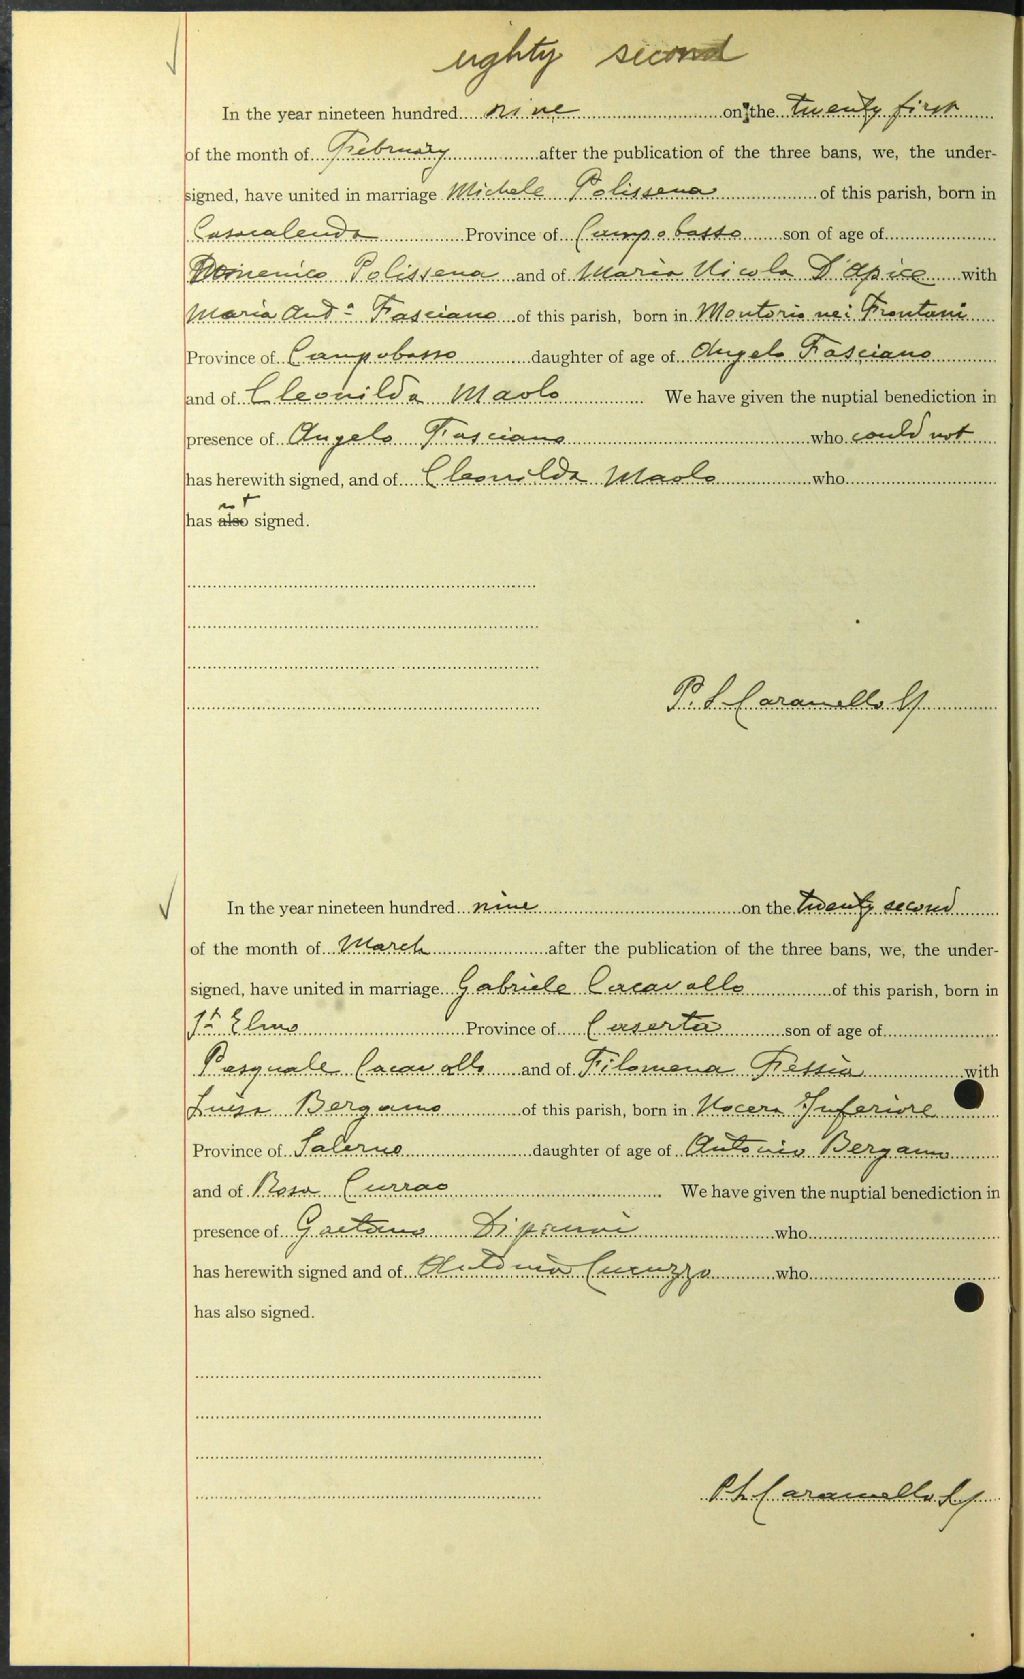 eighty second
In the year nineteen hundred nine on the twenty first
of the month of February after the publication of the three bans, we, the under-
signed, have united in marriage Michele Polissena of this parish, born in
Casacalenda Province of Campobasso son of age of
Domenico Polissena and of Maria Nicola D'Apice with
Maria And.a Fasciano of this parish, born in Montorio nei Frentani
Province of Campobasso daughter of age of Angelo Fasciano
and of Cleonilda Maolo We have given the nuptial benediction in
presence of Angelo Fasciano who could not
has herewith signed, and of Cleonilda Maolo who
not
has also signed.
P. L Caramello
In the year nineteen hundred nine on the twenty second
of the month of March after the publication of the three bans, we, the under-
signed, have united in marriage Gabriele Cacavallo of this parish, born in
St Elmo Province of Caserta son of age of
Pasquale Cacavallo and of Filomena Fessia with
Luisa Bergamo of this parish, born in Nocera Inferiore
Province of Salerno daughter of age of Antonio Bergamo
and of Rosa Currao We have given the nuptial benediction in
presence of Gaetano who
has herewith signed and of Antonio Cucuzzo who
has also signed.
P L Caramello